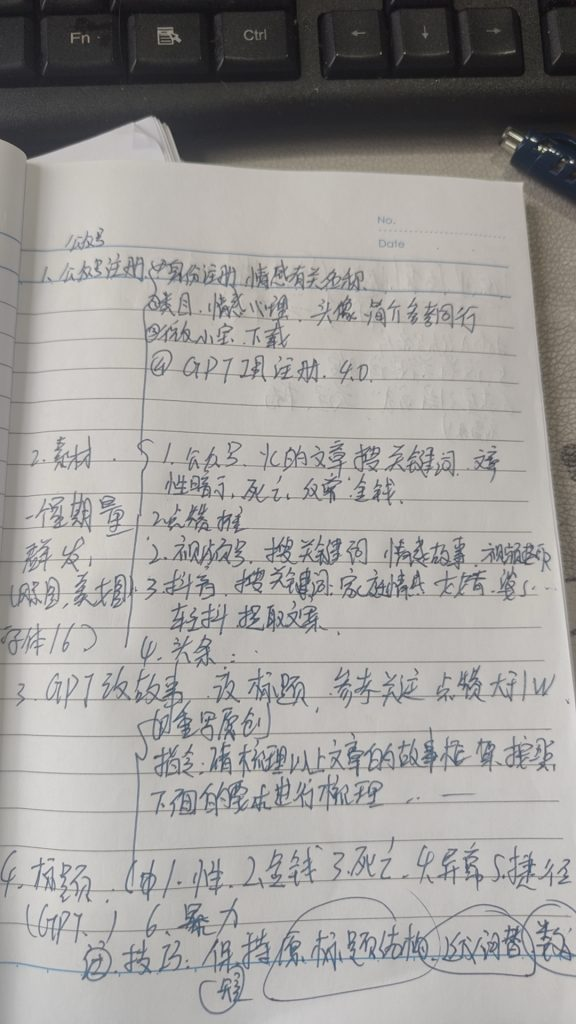 Fn
Ctrl
←
↓
→
No.
Date
公众号
1. 公众号注册 ①身份注册 情感有关名称
②类目,情感心理, 头像 简介参考同行
下载
④ GPT 注册. 4.0.
2. 素材. 1. 公众号. 的文章 搜 关键词
性暗示, 死亡, 金钱.
一个星期量 2点赞 推
群发, 2. 视频号, 搜 关键词 情感故事
3. 抖音, 搜 关键词. 家庭情
字体16) 轻抖 提取文案.
4. 头条 :
3. GPT 改故事 改 标题, 参考 关注 点赞 大于1W
重写原创
指令: 请梳理以上文章的故事框架, 按照
下面的要求进行梳理 ... —
4. 标题. 1. 性. 2. 金钱 3. 死亡. 4. 异常 5. 捷径
(GPT.) 6. 暴力
技巧: 保持 原标题结构 词替